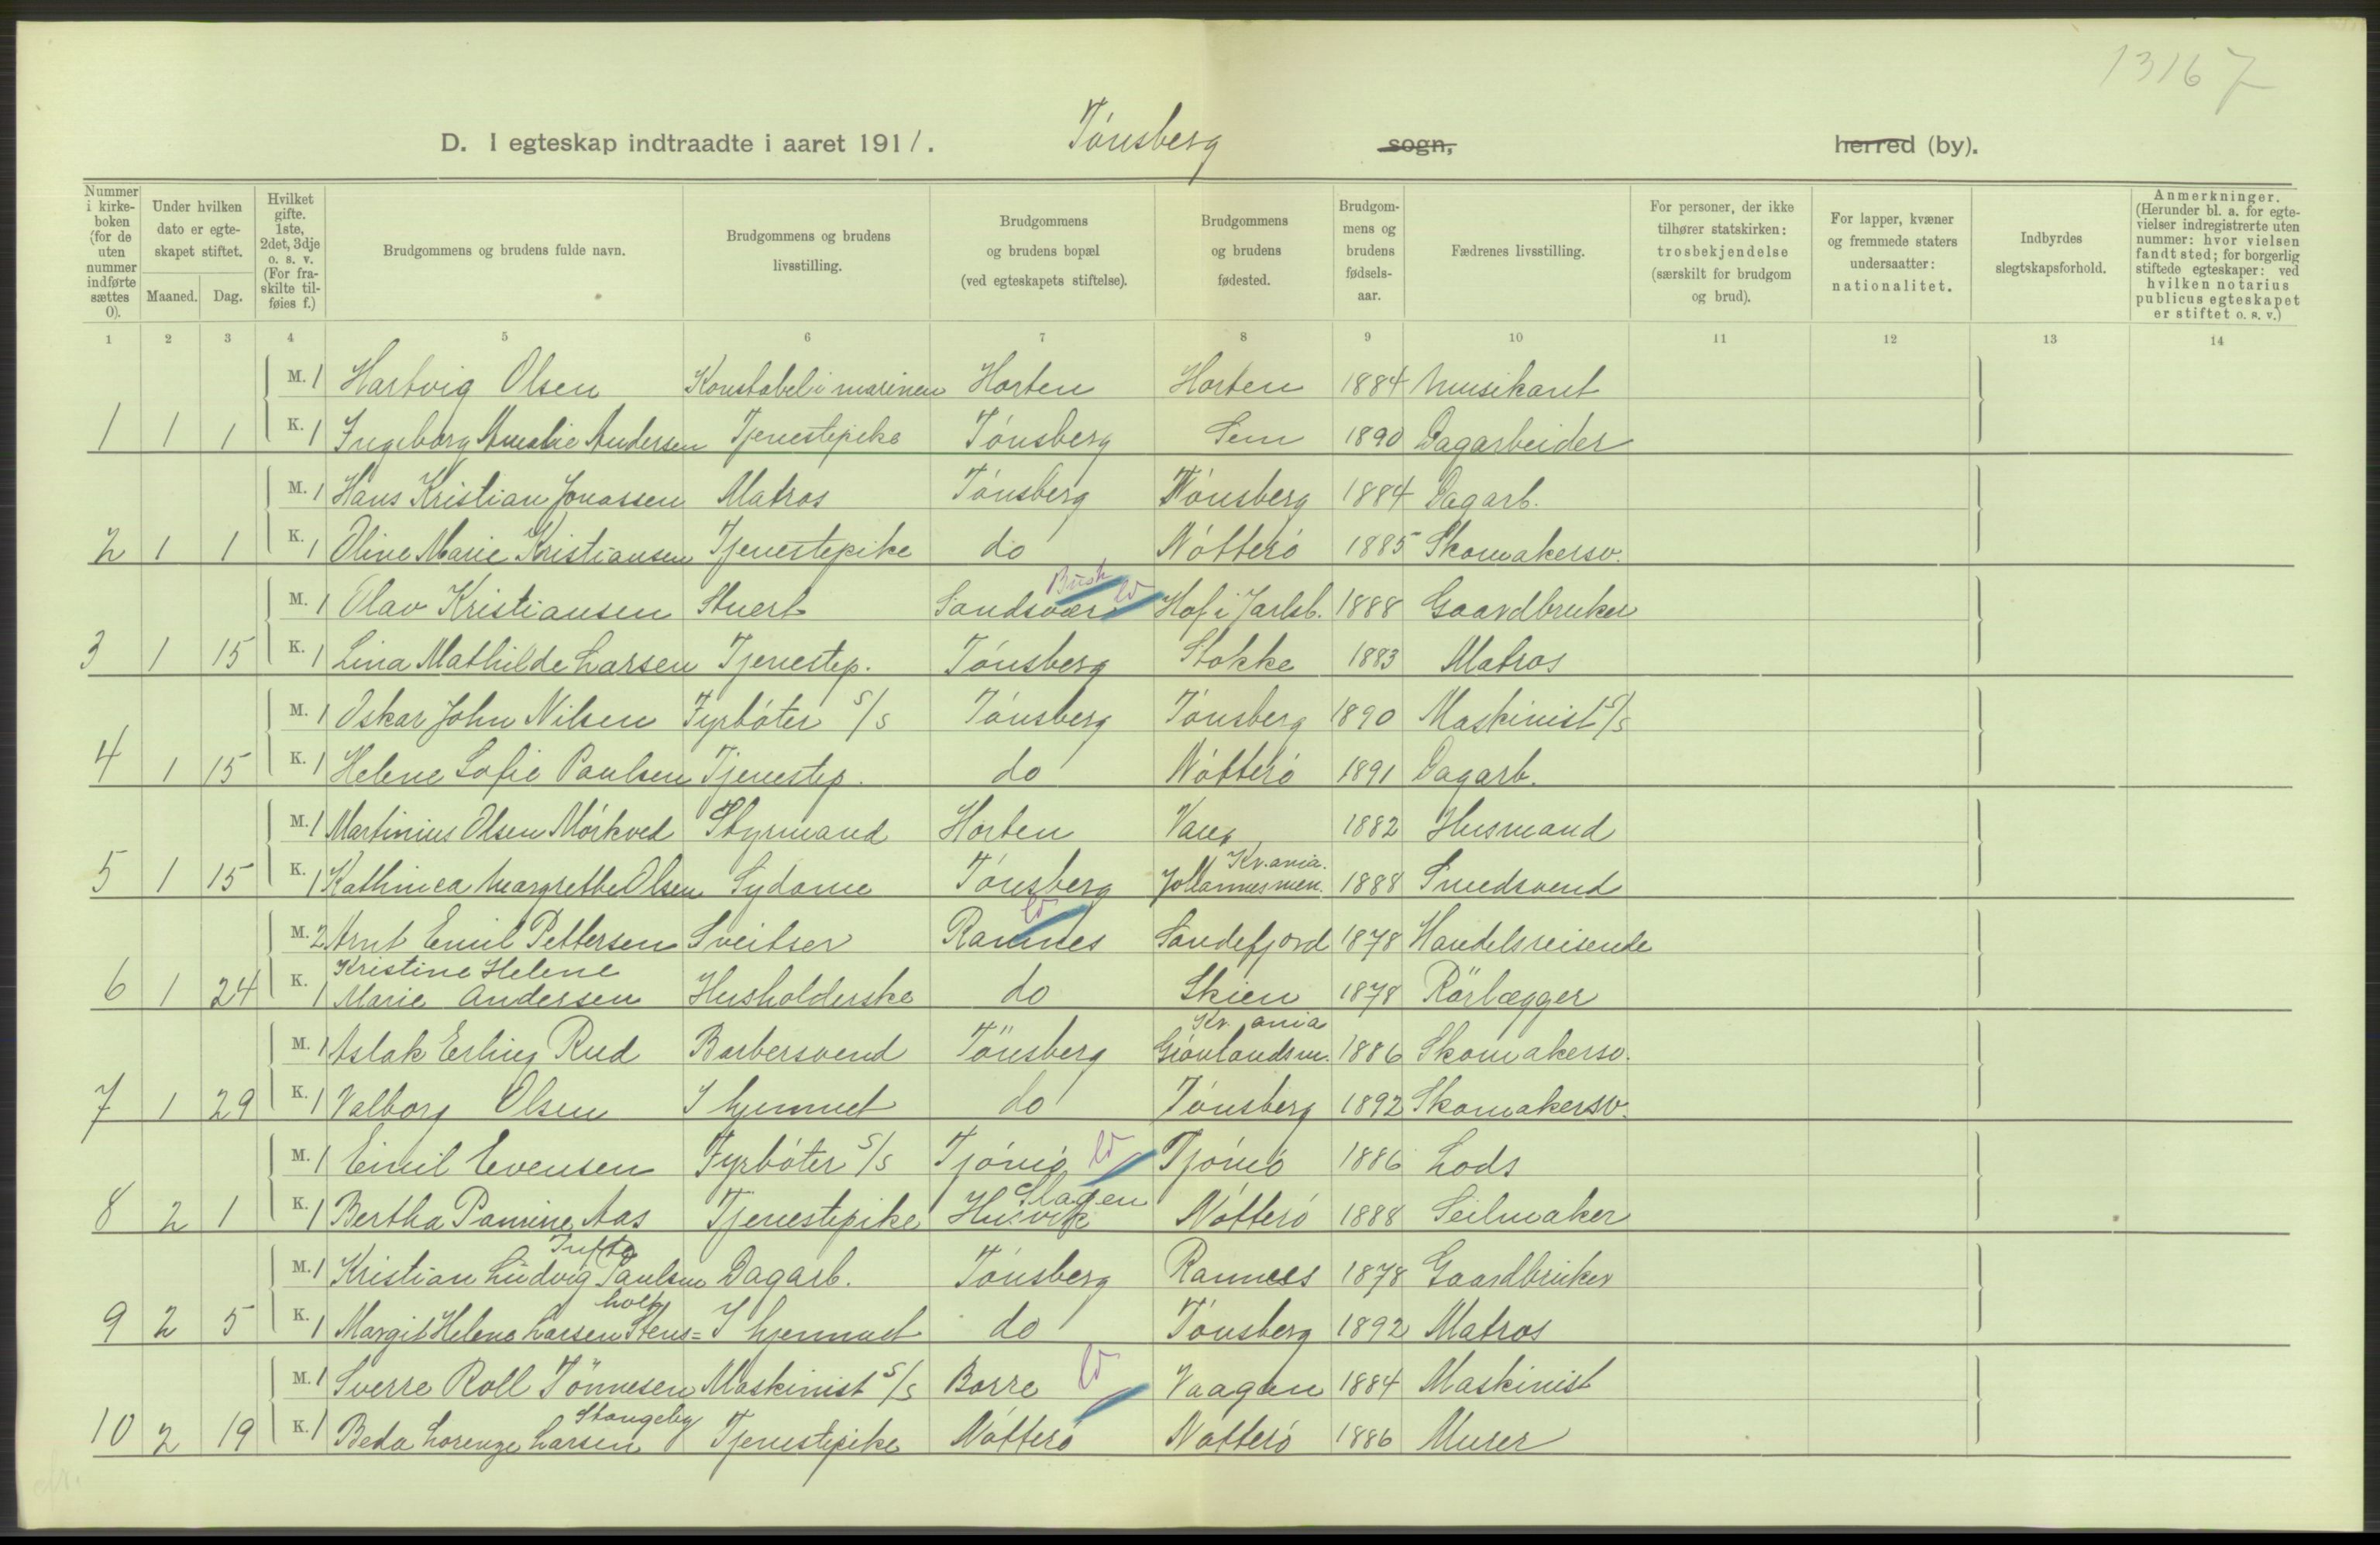 13167
D. I egteskap indtraadte i aaret 1911. Tónsberg sogn, herred (by).
Nummer i kirke- boken (for de uten nummer indførte sættes 0).
Under hvilken dato er egte- skapet stiftet.
Maaned. Dag.
Hvilket gifte. 1ste, 2det, 3dje o. s. v. (For fra- skilte til- føies f.)
Brudgommens og brudens fulde navn.
Brudgommens og brudens livsstilling.
Brudgommens og brudens bopæl (ved egteskapets stiftelse).
Brudgommens og brudens fødested.
Brudgom- mens og brudens fødsels- aar.
Fædrenes livsstilling.
For personer, der ikke tilhører statskirken: trosbekjendelse (særskilt for brudgom og brud).
For lapper, kvæner og fremmede staters undersaatter: nationalitet.
Indbyrdes slegtskapsforhold.
Anmerkninger. (Herunder bl. a. for egte- vielser indregistrerte uten nummer: hvor vielsen fandt sted; for borgerlig stiftede egteskaper: ved hvilken notarius publicus egteskapet er stiftet o. s. v.)
1 2 3 4 5 6 7 8 9 10 11 12 13 14
M. 1 Hartvig Olsen Konstabel i marinen Horten Horten 1884 Musikant
1 1 1 K. 1 Ingeborg Amalie Andersen Tjenestepike Tónsberg Sem 1890 Dagarbeider
M. 1 Hans Kristian Jonassen Matros Tónsberg Tónsberg 1884 Dagarb.
2 1 1 K. 1 Oline Marie Kristiansen Tjenestepike do Nótteró 1885 Skomakersv.
Busk
M. 1 Olav Kristiansen Stuert Sandsvær Hof i Jarlsb. 1888 Gaardbruker
3 1 15 K. 1 Lina Mathilde Larsen Tjenestep. Tónsberg Stokke 1883 Matros
M. 1 Oskar John Nilsen Fyrbóter S/S Tónsberg Tónsberg 1890 Maskinist S/S
4 1 15 K. 1 Helene Sofie Paulsen Tjenestep. do Nótteró 1891 Dagarb.
M. 1 Martinius Olsen Mórkved Styrmand Horten 1882 Husmand
Kr.ania.
5 1 15 K. 1 Kathinca Margrethe Olsen Sydame Tónsberg Johannesmen. 1888 Smedsvend
M. 2 Arnt Emil Pettersen Sveitser Ramnes Sandefjord 1878 Handelsreisende
Kristine Helene
6 1 24 K. 1 Marie Andersen Husholderske do Skien 1878 Rörlægger
Kr.ania
M. 1 Aslak Erling Rud Barbersvend Tönsberg Grónlandsm. 1886 Skomakersv.
7 1 29 K. 1 Valborg Olsen I hjemmet do Tónsberg 1892 Skomakersv.
M. 1 Emil Evensen Fyrbóter S/S Tjómó Tjómó 1886 Lods
Slagen
8 2 1 K. 1 Bertha Pamine Aas Tjenestepike Husvik Nótteró 1888 Seilmaker
Tufte
M. 1 Kristian Ludvig Paulsen Dagarb. Tónsberg Ramnes 1878 Gaardbruker
holt
9 2 5 K. 1 Margit Helene Larsen Stens= I hjemmet do Tónsberg 1892 Matros
M. 1 Sverre Roll Tönnesen Maskinist S/S Borre Vaagan 1884 Maskinist
Stangeby
10 2 19 K. 1 Beda Lorenze Larsen Tjenestepike Nótteró Nótteró 1886 Murer